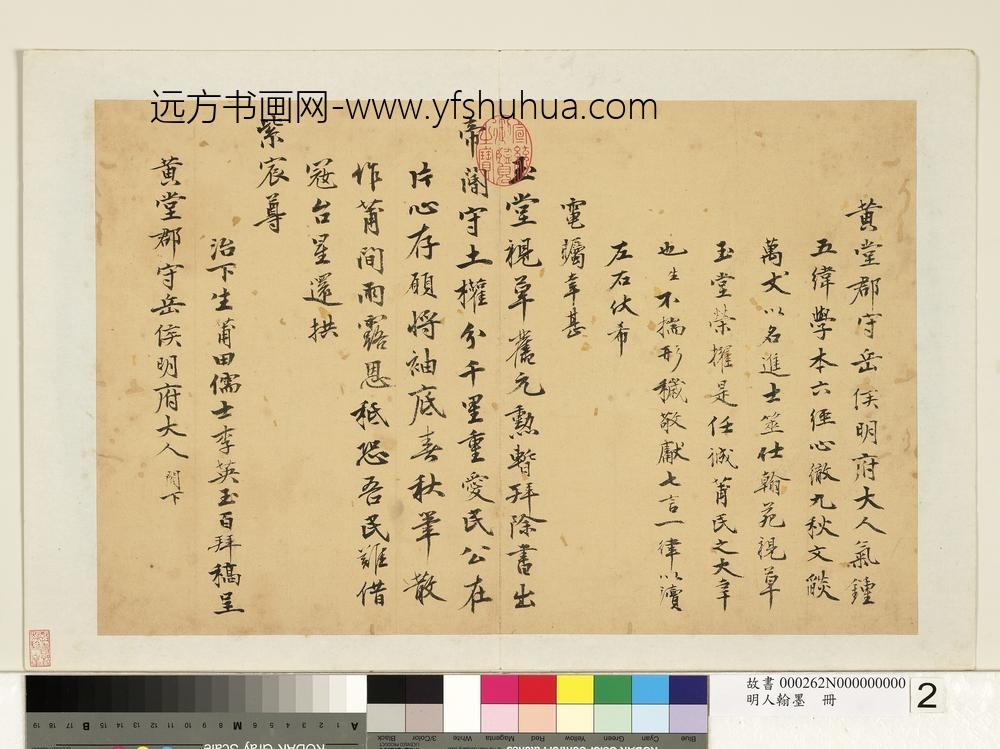 远方书画网-www.yfshuhua.com
黃堂郡守岳侯明府大人氣鍾
五緯學本六經心徹九秋文燄
萬丈以名進士筮仕翰苑視草
玉堂榮擢是任誠莆民之大幸
也生不揣形穢敬獻七言一律以瀆
左右伏希
電矚幸甚
玉堂視草舊元勲暫拜除書出
帝閽守土權分千里重愛民公在
片心存願將袖底春秋筆散
作莆間雨露恩秪恐吾民難借
寇台星還拱
紫宸尊
治下生莆田儒士李英玉百拜稿呈
黃堂郡守岳侯明府大人閣下
故書 000262N000000000
明人翰墨 冊
2
A 1 2 3 4 5 6 M 8 9 10 11 12 13 14 15 B 17 18 19
KODAK Gray Scale
Black 3/Color White Magenta Red Yellow Green Cyan Blue